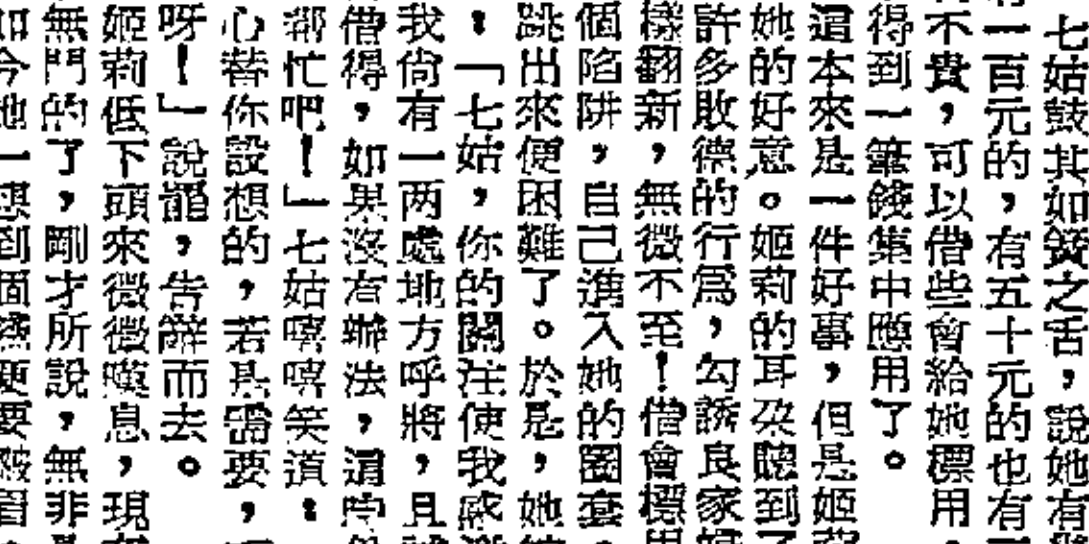 七姑鼓其如簧之舌，說她有
一百元的，有五十元的也有
不貴，可以借些會給她標用
得到一筆錢集中應用了。
這本來是一件好事，但是姬
她的好意。姬莉的耳朶聽到了
許多敗德的行為，勾誘良家婦
樣翻新，無微不至！借會標用
個陷阱，自己進入她的圈套。
跳出來便困難了。於是，她
：「七姑，你的關注使我感激
我尚有一两處地方呼將，且
借得，如果沒有辦法，
忙吧！」七姑嘻嘻笑道：
心替你設想的，若是需要，
呀！」說罷，告辭而去。
姬莉低下頭來微微嘆息，現
無門的了，剛才所說，無非
如今她一想到更要皺眉